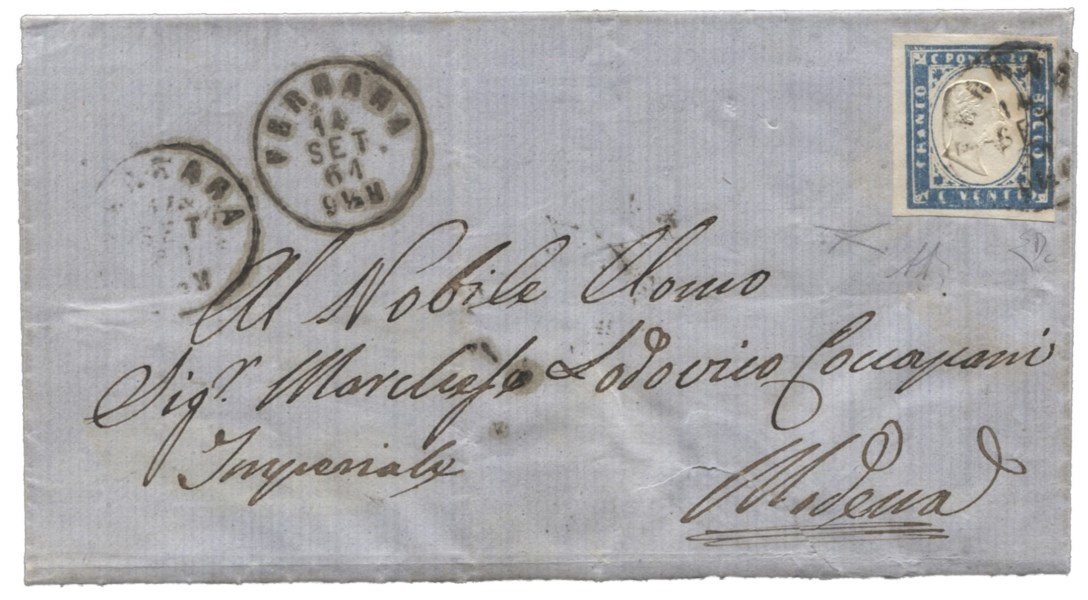 FERRARA
14
SET.
61
9½M
FRANCO
C. POSTE 20
BOLLO
C. VENTI
Al Nobile Uomo
Sigr. Marchese Lodovico Coccapani
Imperiale
Modena